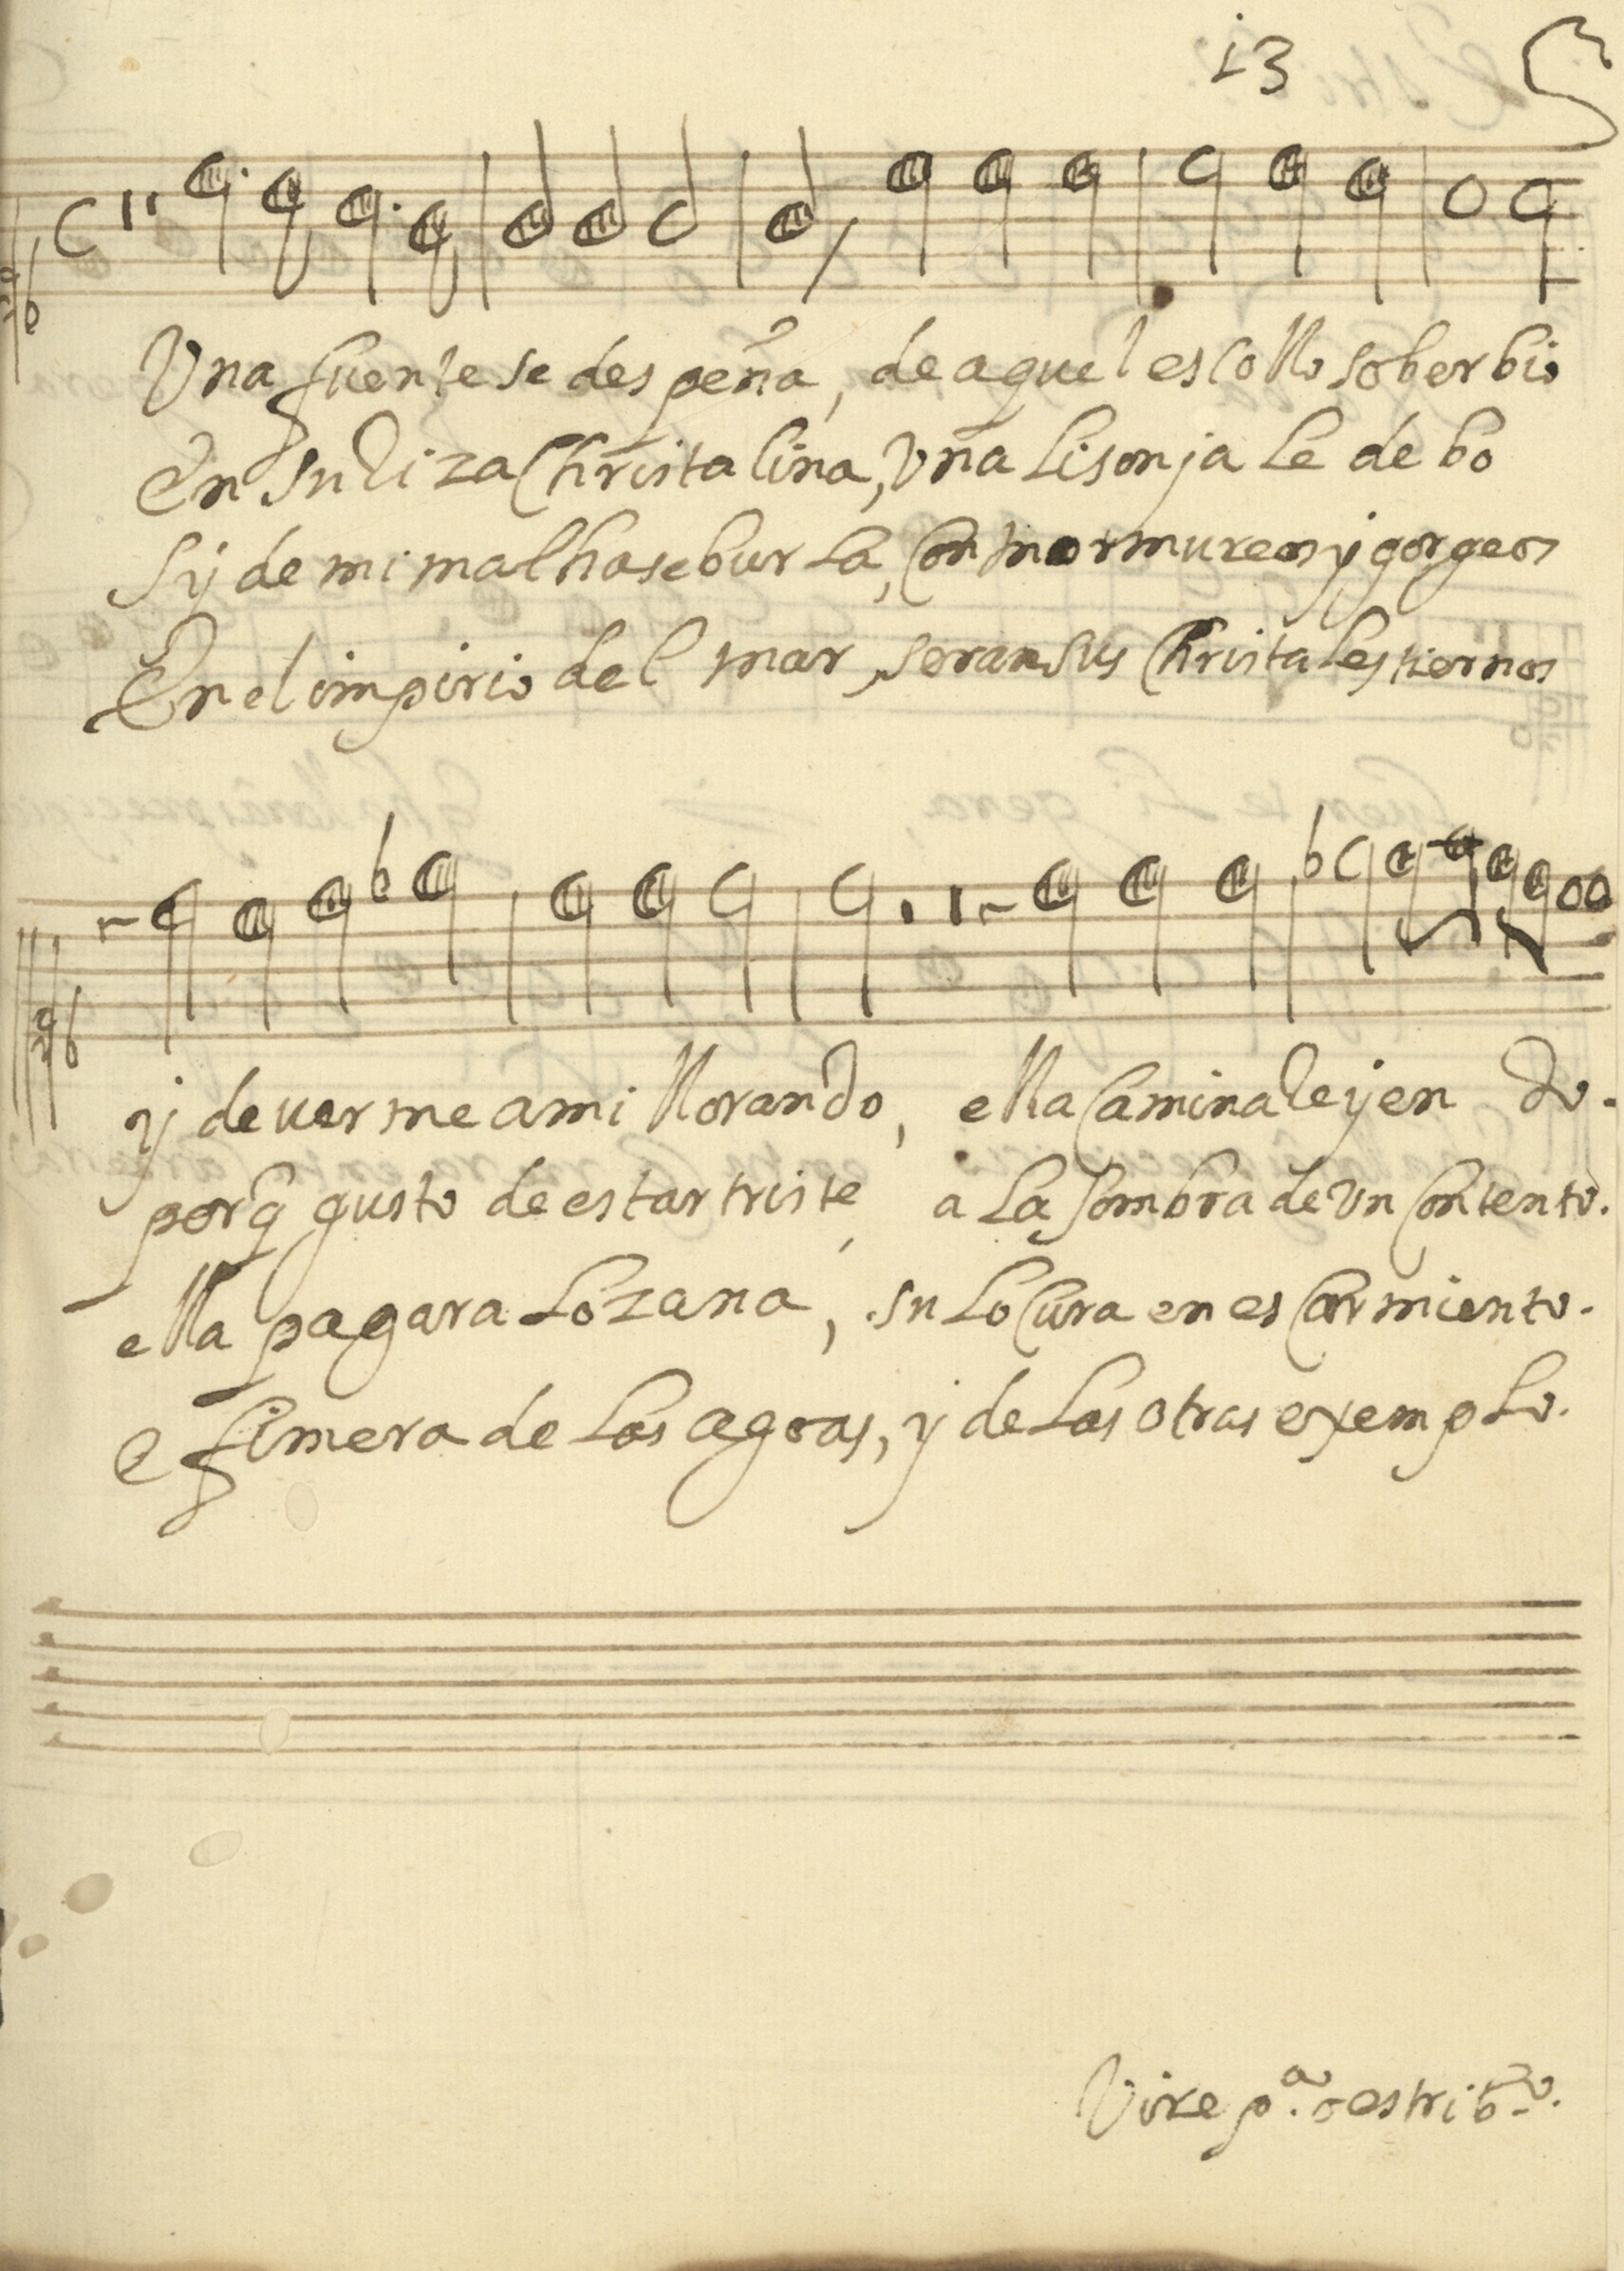 13
Una fuente se despeña, de aquel escollo soberbio
En su liza Christalina, Una lisonja le debo
Sy de mi mal hase burla, Con mormureos y gorgeos
En el impirio del mar, seran sus Christales tiernos
y de verme a mi llorando, ella Camina leyendo.
porq̃ gusto de estar triste, a la sombra de Un Contento.
ella pagara lozana, su loCura en esCarmiento.
efimera de las agoas, y de las otras exemplo.
Vire pᵃ. o estribᵒ.